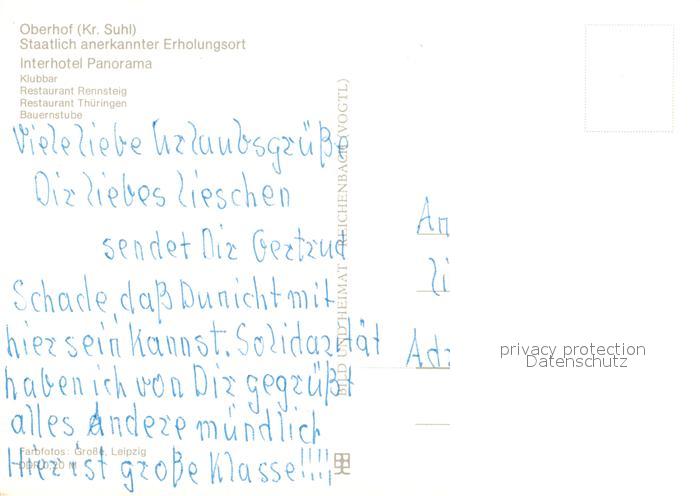 Oberhof (Kr. Suhl)
Staatlich anerkannter Erholungsort
Interhotel Panorama
Klubbar
Restaurant Rennsteig
Restaurant Thüringen
Bauernstube
Viele liebe Urlaubsgrüße
Dir liebes Lieschen
sendet Dir Gertrud
Schade, daß Du nicht mit
hier sein kannst. Solidarität
haben ich von Dir gegrüßt
alles Andere mündlich
Hier ist große Klasse!!!!
Farbfotos: Große, Leipzig
DDR 0,20 M
BILD UND HEIMAT REICHENBACH (VOGTL)
An
li
Adr
privacy protection
Datenschutz